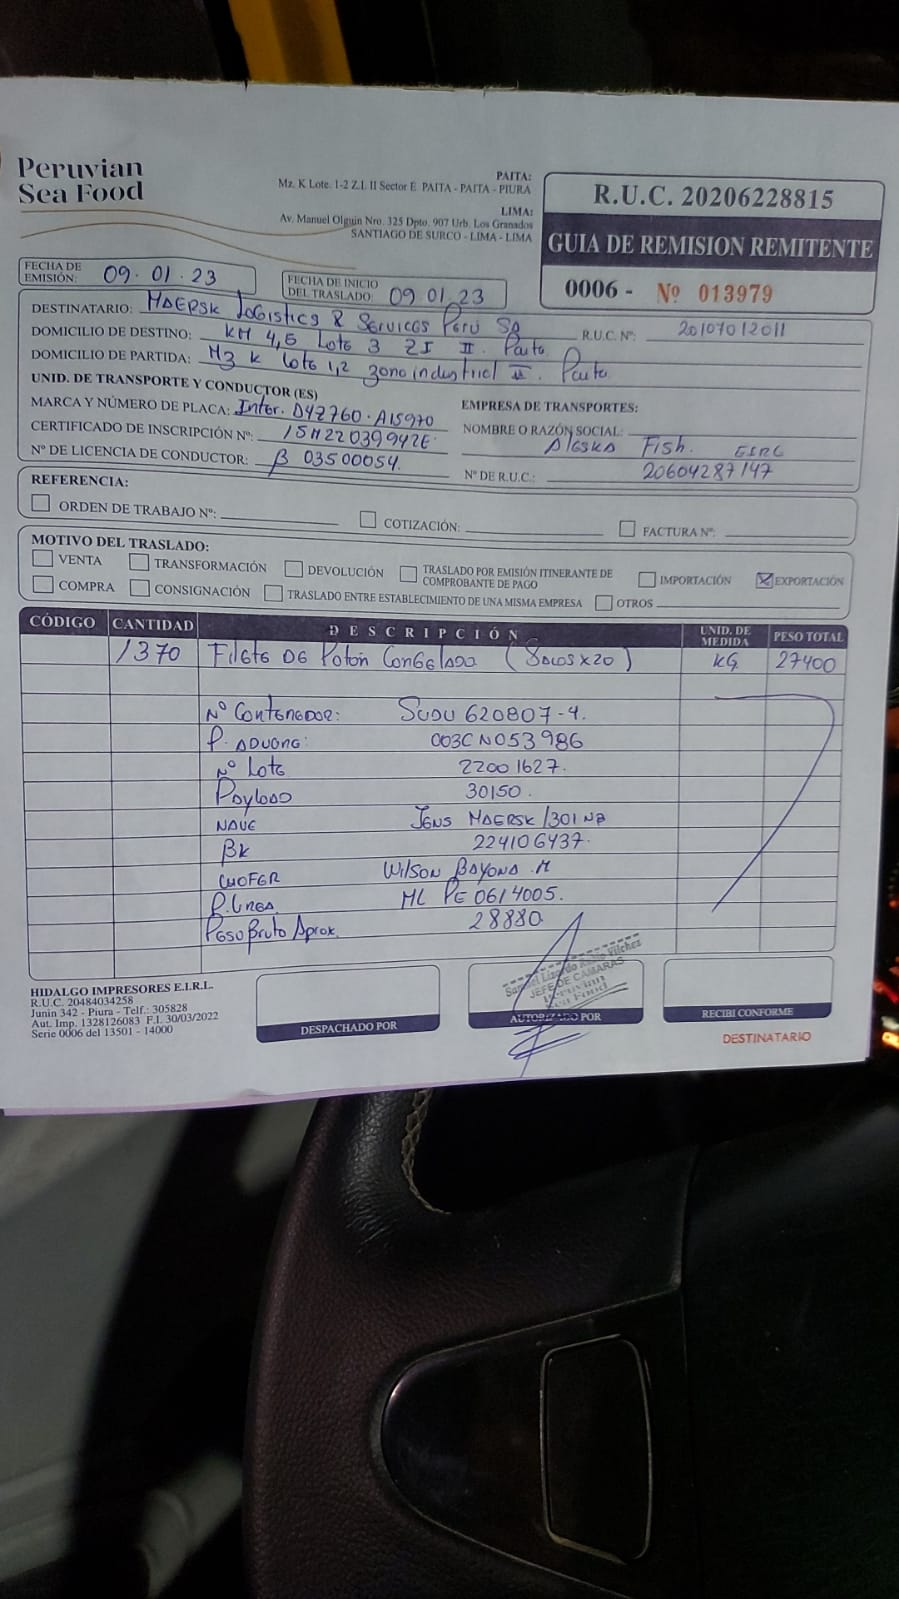 Peruvian
Sea Food
PAITA:
Mz. K Lote. 1-2 Z.I. II Sector E PAITA - PAITA - PIURA
LIMA:
Av. Manuel Olguin Nro. 325 Dpto. 907 Urb. Los Granados
SANTIAGO DE SURCO - LIMA - LIMA
R.U.C. 20206228815
GUIA DE REMISION REMITENTE
0006 - Nº 013979
FECHA DE EMISIÓN: 09.01.23
FECHA DE INICIO DEL TRASLADO: 09 01 23
DESTINATARIO: MAERSK Logistics & Services Perú SA
R.U.C. Nº: 20107012011
DOMICILIO DE DESTINO: KM 4,5 Lote 3 ZI II. Paita
DOMICILIO DE PARTIDA: Mz K Lote 1,2 zona industrial II. Paita
UNID. DE TRANSPORTE Y CONDUCTOR (ES)
MARCA Y NÚMERO DE PLACA: Inter. D4Z760 - A1S970
CERTIFICADO DE INSCRIPCIÓN Nº: 15M22039942E
Nº DE LICENCIA DE CONDUCTOR: B 03500054.
EMPRESA DE TRANSPORTES:
NOMBRE O RAZÓN SOCIAL:
Aleska Fish. EIRL
Nº DE R.U.C.: 20604287147
REFERENCIA:
ORDEN DE TRABAJO Nº:
COTIZACIÓN:
FACTURA Nº:
MOTIVO DEL TRASLADO:
VENTA
TRANSFORMACIÓN
DEVOLUCIÓN
TRASLADO POR EMISIÓN ITINERANTE DE COMPROBANTE DE PAGO
IMPORTACIÓN
EXPORTACIÓN
COMPRA
CONSIGNACIÓN
TRASLADO ENTRE ESTABLECIMIENTO DE UNA MISMA EMPRESA
OTROS
CÓDIGO CANTIDAD DESCRIPCIÓN UNID. DE MEDIDA PESO TOTAL
1370 Filete DE Potón Congelado (Sacos x 20) KG 27400
Nº Contenedor: SUDU 620807-4.
P. ADUANA: 003CN053986
Nº Lote 22001627.
Payload 30150.
NAVE JENS MAERSK/301 NB
BK 224106437.
CHOFER Wilson BAYONA .M
P. Linea. ML PE 0614005.
Peso Bruto Aprox. 28880
HIDALGO IMPRESORES E.I.R.L.
R.U.C. 20484034258
Junin 342 - Piura - Telf.: 305828
Aut. Imp. 1328126083 F.I. 30/03/2022
Serie 0006 del 13501 - 14000
DESPACHADO POR
Vilchez
JEFE DE CAMARAS
Peruvian
Sea Food
AUTORIZADO POR
RECIBI CONFORME
DESTINATARIO